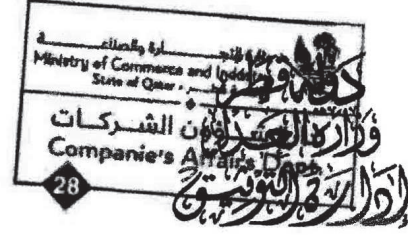 وزارة التجـــارة والصناعـــة
Ministry of Commerce and Industry
State of Qatar
شؤون الشـركـات
Companie's Affairs Dept.
28
دولة قطر
وزارة العدل
إدارة التوثيق